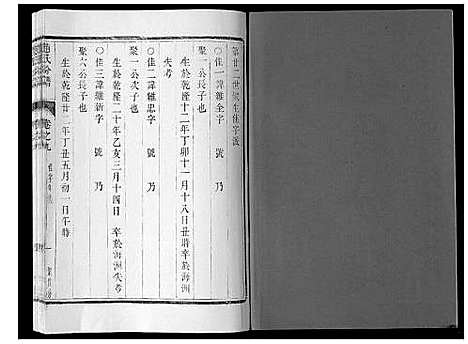 第廿二世後生佳字派
○佳一諱維全字　號　乃
聚一公長子也
生於乾隆十二年丁卯十一月十八日丑時卒於海洲
失考
○佳二諱維忠字　號　乃
聚一公次子也
生於乾隆二十年乙亥三月十四日　卒於海洲失考
○佳三諱維新字　號　乃
聚六公長子也
生於乾隆廿二年丁丑五月初一日午時
卷之九